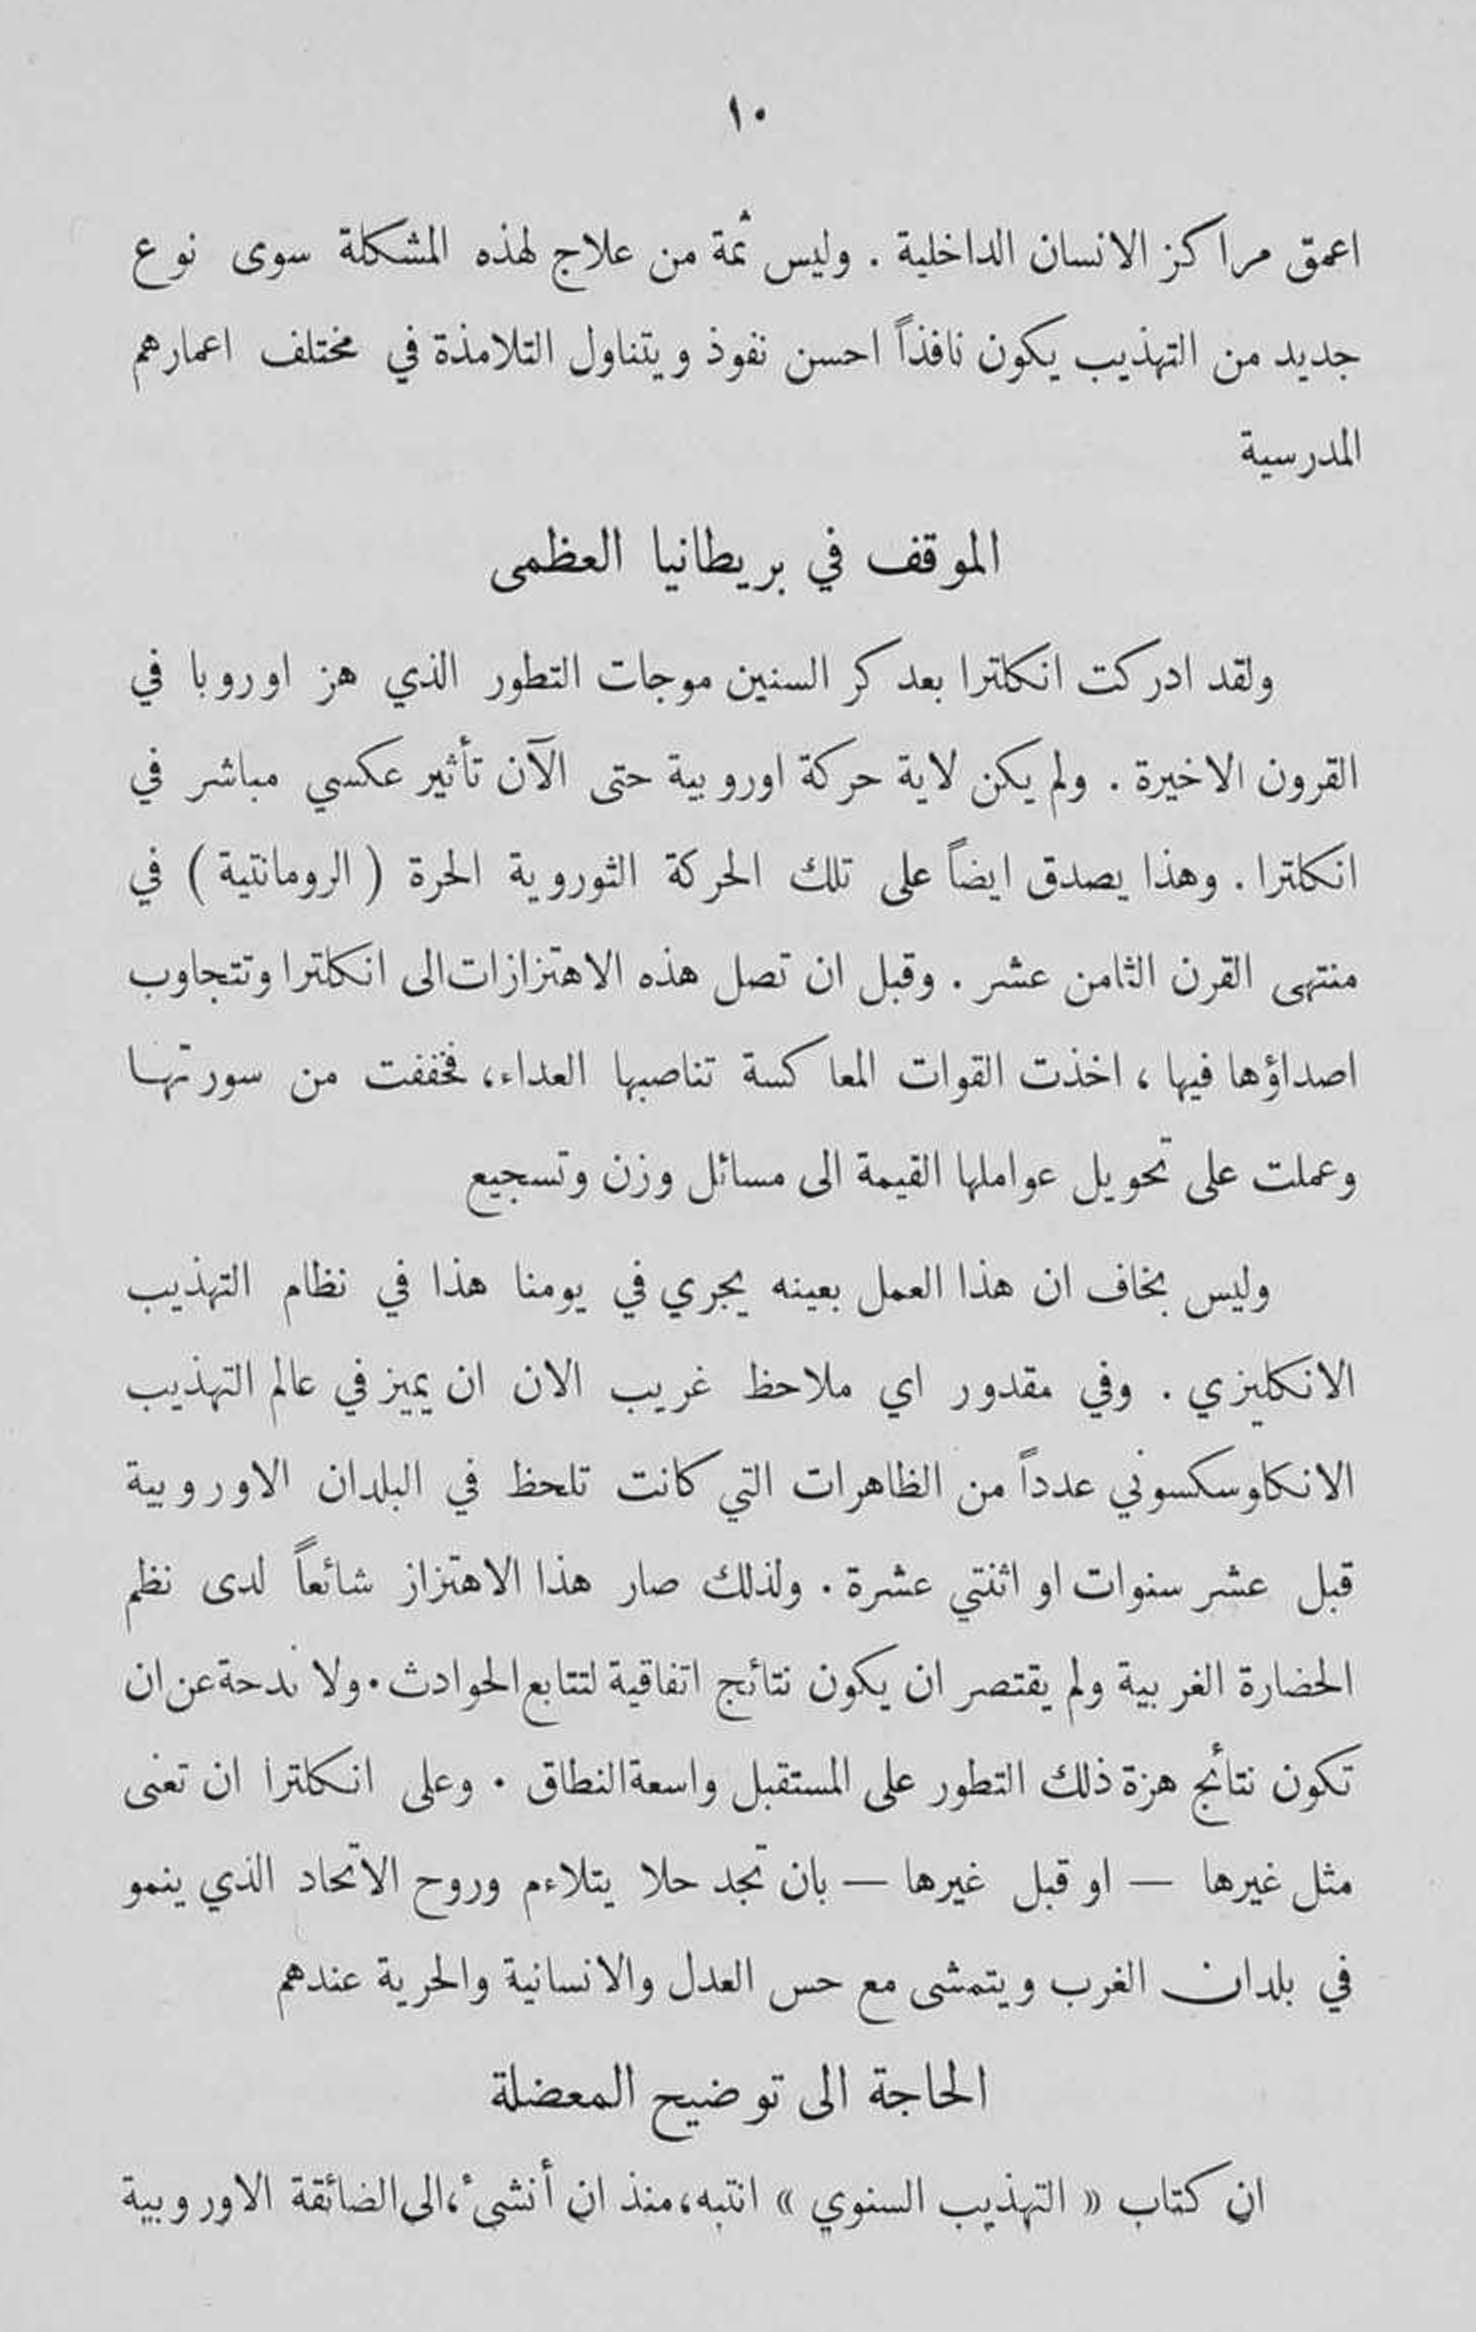 ١٠
اعمق مراكز الانسان الداخلية . وليس ثمة من علاج لهذه المشكلة سوى نوع
جديد من التهذيب يكون نافذاً احسن نفوذ ويتناول التلامذة في مختلف اعمارهم
المدرسية
الموقف في بريطانيا العظمى
ولقد ادركت انكلترا بعد كر السنين موجات التطور الذي هز اوروبا في
القرون الاخيرة . ولم يكن لاية حركة اوروبية حتى الآن تأثير عكسي مباشر في
انكلترا . وهذا يصدق ايضاً على تلك الحركة الثوروية الحرة ( الرومانتية ) في
منتهى القرن الثامن عشر . وقبل ان تصل هذه الاهتزازات الى انكلترا وتتجاوب
اصداؤها فيها ، اخذت القوات المعاكسة تناصبها العداء، فخففت من سورتها
وعملت على تحويل عواملها القيمة الى مسائل وزن وتسجيع
وليس بخاف ان هذا العمل بعينه يجري في يومنا هذا في نظام التهذيب
الانكليزي . وفي مقدور اي ملاحظ غريب الان ان يميز في عالم التهذيب
الانكلوسكسوني عدداً من الظاهرات التي كانت تلحظ في البلدان الاوروبية
قبل عشر سنوات او اثنتي عشرة . ولذلك صار هذا الاهتزاز شائعاً لدى نظم
الحضارة الغربية ولم يقتصر ان يكون نتائج اتفاقية لتتابع الحوادث . ولا ندحة عن ان
تكون نتائج هزة ذلك التطور على المستقبل واسعة النطاق . وعلى انكلترا ان تعنى
مثل غيرها — او قبل غيرها — بان تجد حلا يتلاءم وروح الاتحاد الذي ينمو
في بلدان الغرب ويتمشى مع حس العدل والانسانية والحرية عندهم
الحاجة الى توضيح المعضلة
ان كتاب « التهذيب السنوي » انتبه، منذ ان أنشئ، الى الضائقة الاوروبية